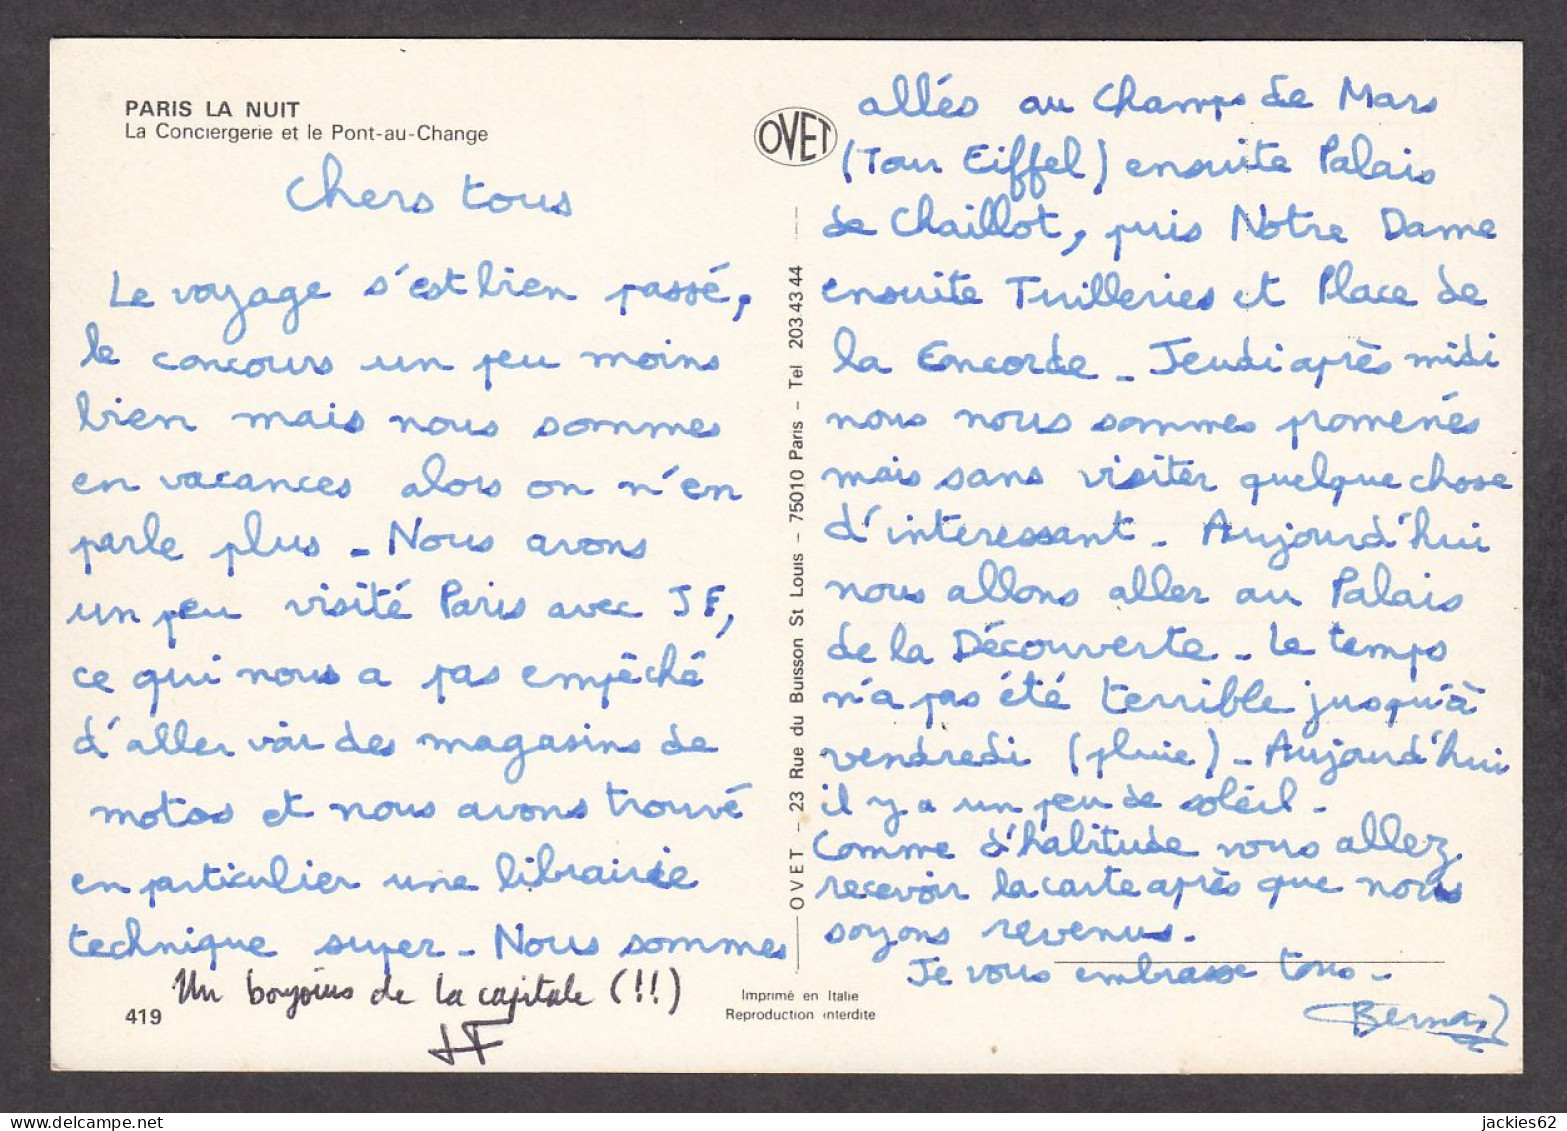 PARIS LA NUIT
La Conciergerie et le Pont-au-Change
Chers tous
Le voyage s'est bien passé,
le concours un peu moins
bien mais nous sommes
en vacances alors on n'en
parle plus - Nous avons
un peu visité Paris avec JF,
ce qui nous a pas empêché
d'aller voir des magasins de
motos et nous avons trouvé
en particulier une librairie
technique super - Nous sommes
Un bonjours de la capitale (!!)
JF
419
OVET
OVET - 23 Rue du Buisson St Louis - 75010 Paris - Tel 203 43 44
Imprimé en Italie
Reproduction interdite
allés au Champs de Mars
(Tour Eiffel) ensuite Palais
de Chaillot, puis Notre Dame
ensuite Tuilleries et Place de
la Concorde - Jeudi après midi
nous nous sommes promenés
mais sans visiter quelque chose
d'interessant - Aujourd'hui
nous allons aller au Palais
de la Découverte - Le temps
n'a pas été terrible jusqu'à
vendredi (pluie) - Aujourd'hui
il y a un peu de soleil -
Comme d'habitude vous allez
recevoir la carte après que nous
soyons revenus -
Je vous embrasse tous -
Bernard
jackies62